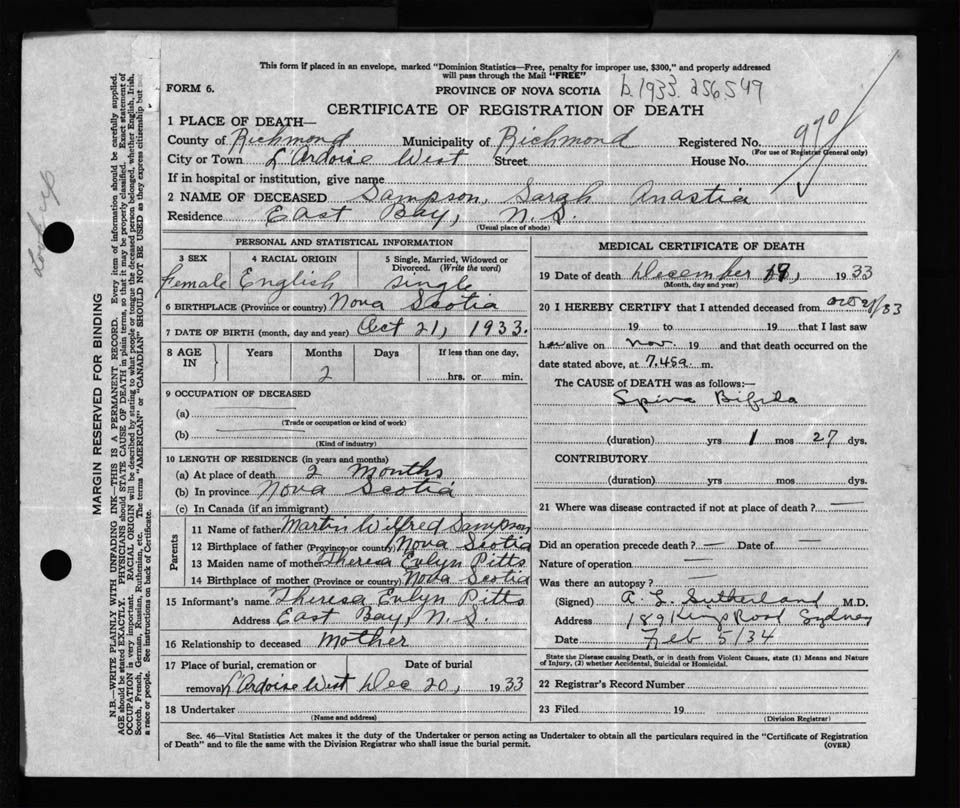 This form if placed in an envelope, marked "Dominion Statistics—Free, penalty for improper use, $300," and properly addressed
will pass through the Mail "FREE"
FORM 6.
PROVINCE OF NOVA SCOTIA
b. 1933. 256549
CERTIFICATE OF REGISTRATION OF DEATH
970
1 PLACE OF DEATH—
County of Richmond Municipality of Richmond Registered No.
(For use of Registrar General only)
City or Town L'Ardoise West Street House No.
If in hospital or institution, give name
2 NAME OF DECEASED Sampson, Sarah Anastia
Residence East Bay, N.S.
(Usual place of abode)
PERSONAL AND STATISTICAL INFORMATION
3 SEX 4 RACIAL ORIGIN 5 Single, Married, Widowed or
Divorced. (Write the word)
female English single
6 BIRTHPLACE (Province or country) Nova Scotia
7 DATE OF BIRTH (month, day and year) Oct 21, 1933.
8 AGE IN Years Months Days If less than one day,
2 hrs. or min.
9 OCCUPATION OF DECEASED
(a)
(Trade or occupation or kind of work)
(b)
(Kind of industry)
10 LENGTH OF RESIDENCE (in years and months)
(a) At place of death 2 Months
(b) In province Nova Scotia
(c) In Canada (if an immigrant)
Parents
11 Name of father Martin Wilfred Sampson
12 Birthplace of father (Province or country) Nova Scotia
13 Maiden name of mother Theresa Evlyn Pitts
14 Birthplace of mother (Province or country) Nova Scotia
15 Informant's name Theresa Evlyn Pitts
Address East Bay, N.S.
16 Relationship to deceased Mother
17 Place of burial, cremation or Date of burial
removal L'Ardoise West Dec 20, 1933
18 Undertaker
(Name and address)
MEDICAL CERTIFICATE OF DEATH
19 Date of death December 19, 1933
(Month, day and year)
20 I HEREBY CERTIFY that I attended deceased from Oct 21/33
19 to 19 that I last saw
her alive on Nov. 19 and that death occurred on the
date stated above, at 7.45a m.
The CAUSE OF DEATH was as follows:—
Spina Bifida
(duration) yrs 1 mos 27 dys.
CONTRIBUTORY
(duration) yrs. mos. dys.
21 Where was disease contracted if not at place of death? —
Did an operation precede death? — Date of —
Nature of operation —
Was there an autopsy? —
(Signed) A. L. Sutherland M.D.
Address 189 Kings Road Sydney
Date Feb 5/34
State the Disease causing Death, or in death from Violent Causes, state (1) Means and Nature
of Injury, (2) whether Accidental, Suicidal or Homicidal.
22 Registrar's Record Number
23 Filed 19
(Division Registrar)
Sec. 46—Vital Statistics Act makes it the duty of the Undertaker or person acting as Undertaker to obtain all the particulars required in the "Certificate of Registration
of Death" and to file the same with the Division Registrar who shall issue the burial permit.
(OVER)
MARGIN RESERVED FOR BINDING
N.B.—WRITE PLAINLY WITH UNFADING INK—THIS IS A PERMANENT RECORD. Every item of information should be carefully supplied.
AGE should be stated EXACTLY. PHYSICIANS should STATE CAUSE OF DEATH in plain terms, so that it may be properly classified. Exact statement of
OCCUPATION is very important. RACIAL ORIGIN will be described by stating to what people or tongue the deceased person belonged, whether English, Irish,
Scotch, French, German, Russian, Ruthenian, etc. The terms "AMERICAN" or "CANADIAN" SHOULD NOT BE USED as they express citizenship but
a race or people. See instructions on back of Certificate.